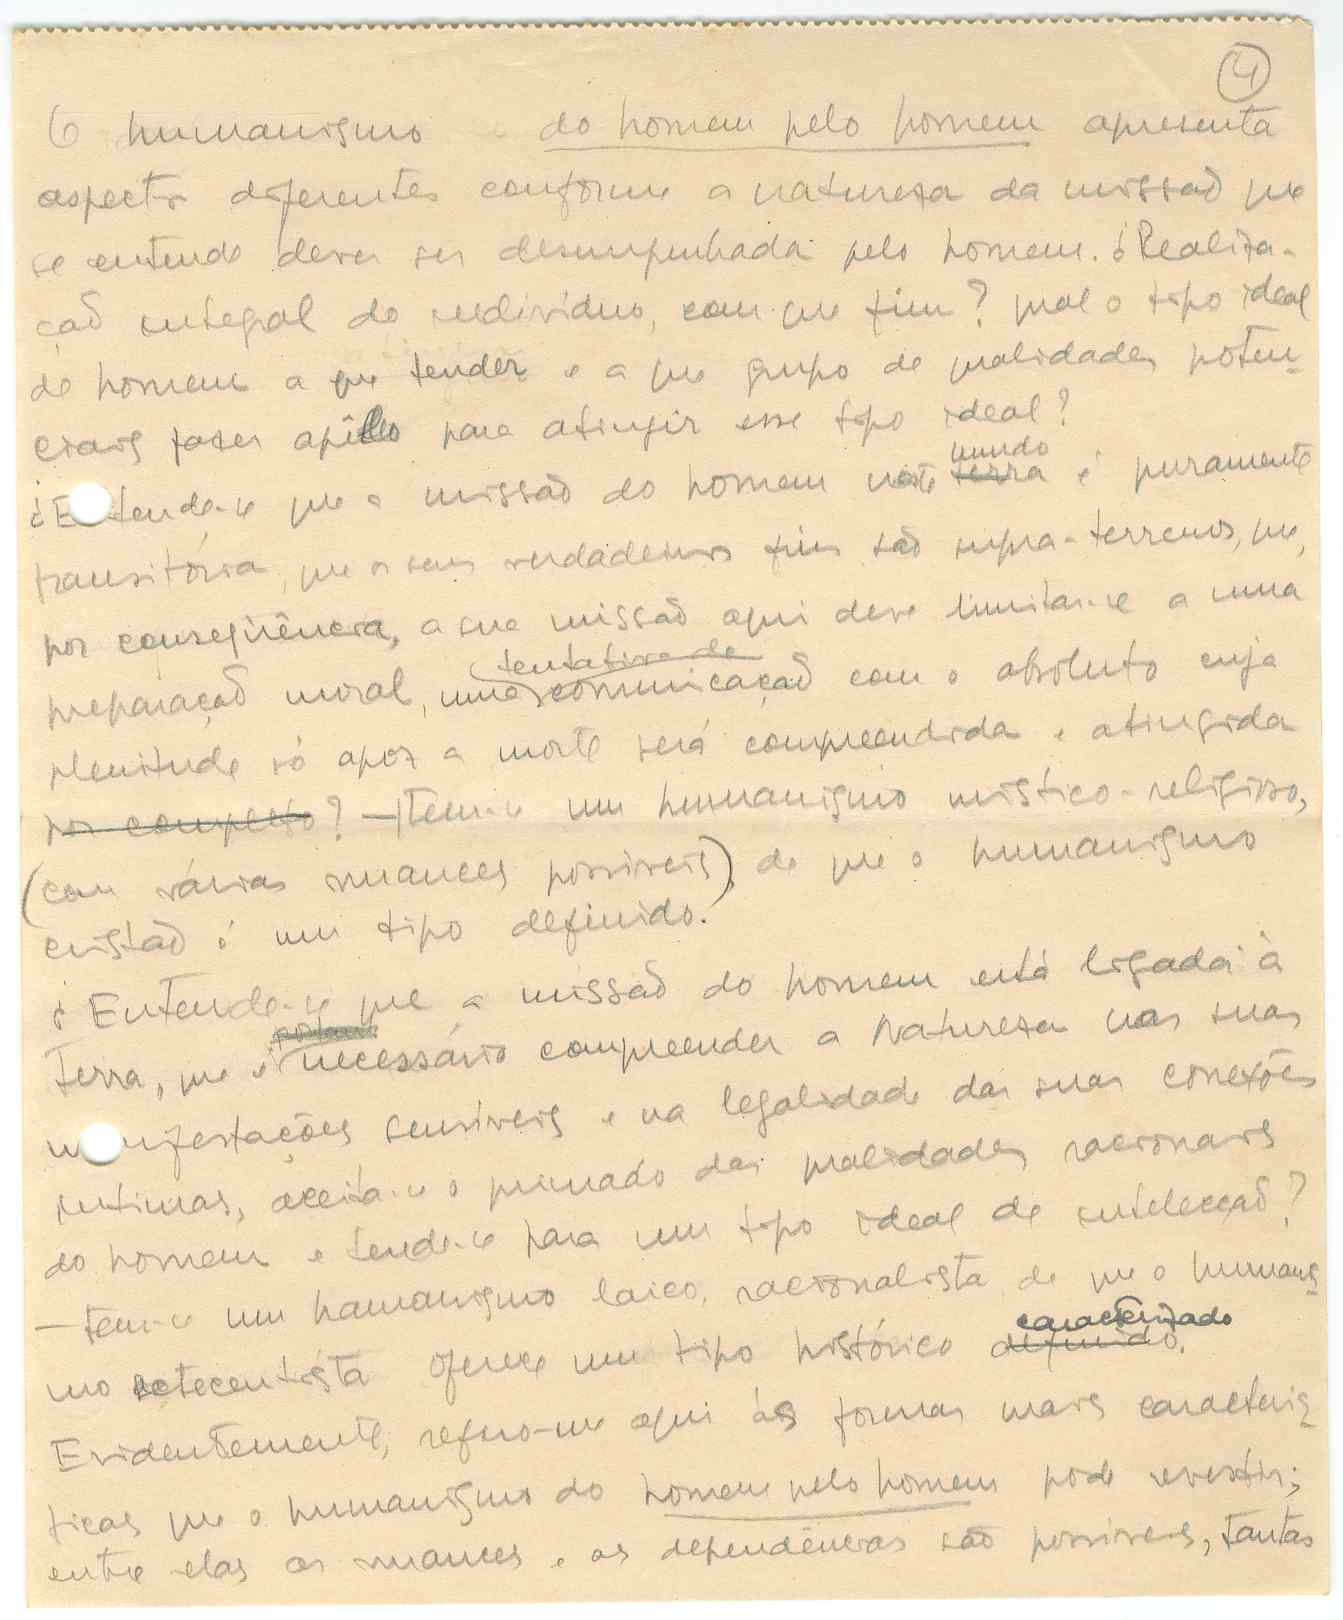 4
O humanismo do homem pelo homem apresenta
aspectos diferentes conforme a natureza da missão que
se entende dever ser desempenhada pelo homem. ¿Realiza-
ção integral do indivíduo, com que fim? qual o tipo ideal
de homem a que tender e a que grupo de qualidades poten-
ciais fazer apêlo para atingir esse tipo ideal?
mundo
¿Entende-se que a missão do homem neste terra é puramente
transitória, que os seus verdadeiros fins são supra-terrenos, que,
por conseqüência, a sua missão aqui deve limitar-se a uma
tentativa de
preparação moral, uma comunicação com o absoluto cuja
plenitude só apoz a morte será compreendida e atingida
por completo? —Tem-se um humanismo místico-religioso,
(com várias nuances possíveis) de que o humanismo
cristão é um tipo definido.
¿Entende-se que a missão do homem está ligada à
portanto
Terra, que é necessário compreender a Natureza nas suas
manifestações sensíveis e na legalidade das suas conexões
íntimas, aceita-se o primado das qualidades racionais
do homem e tende-se para um tipo ideal de intelecção?
—tem-se um humanismo laico, racionalista de que o humanis-
caracterizado
mo setecentista oferece um tipo histórico definido.
Evidentemente, refiro-me aqui às formas mais caracterís-
ticas que o humanismo do homem pelo homem pode revestir;
entre elas as nuances e as dependências são possíveis, tantas